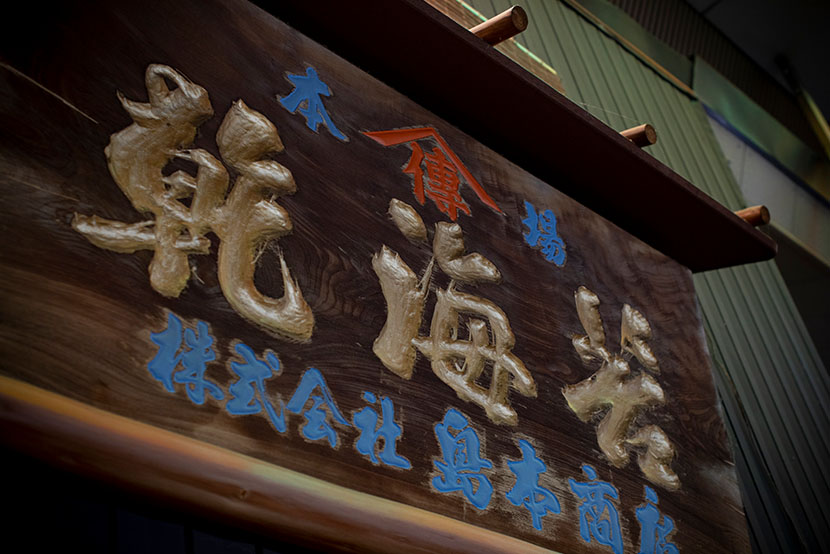 本 傳 場
乾海苔
株式会社 島本商店